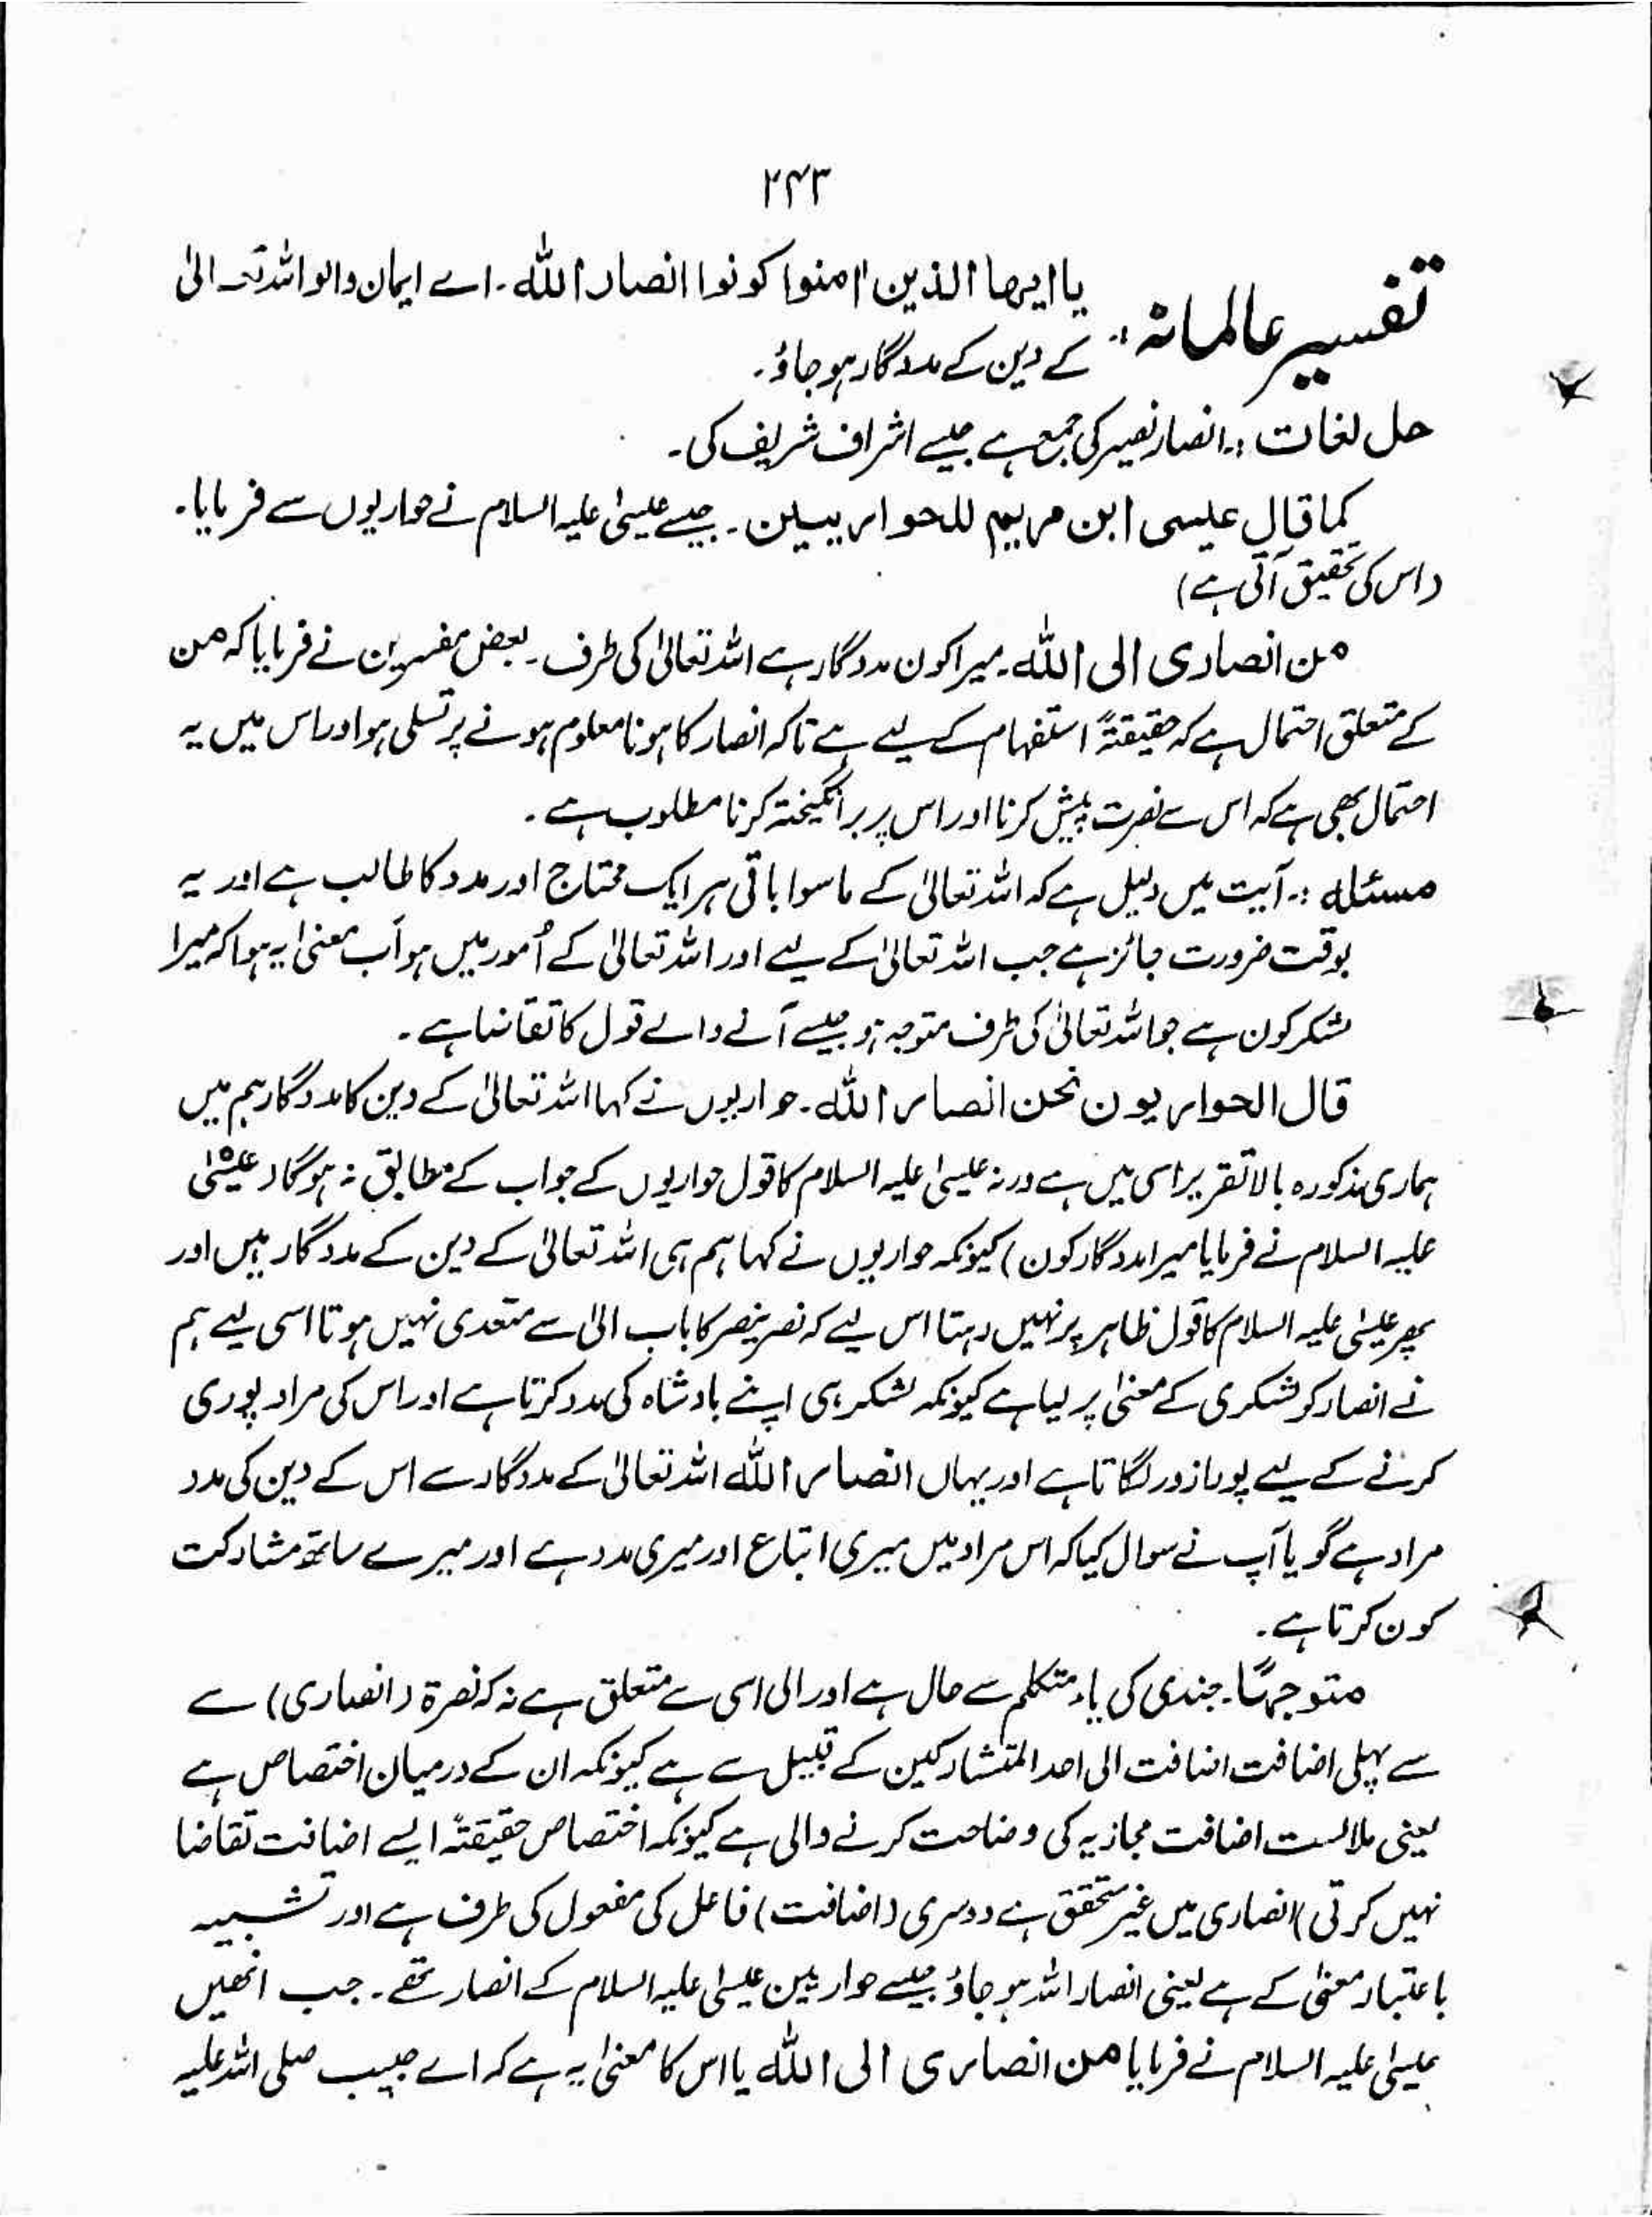 ۲۴۳
تفسیر عالمانہ: یا ایھا الذین اٰمنوا کونوا انصار اللہ۔ اے ایمان والو اللہ تعالیٰ
کے دین کے مددگار ہو جاؤ۔
حل لغات:۔ انصار نصیر کی جمع ہے جیسے اشراف شریف کی۔
کما قال عیسی ابن مریم للحواریین۔ جیسے عیسیٰ علیہ السلام نے حواریوں سے فرمایا۔
(اس کی تحقیق آتی ہے)
من انصاری الی اللہ۔ میرا کون مددگار ہے اللہ تعالیٰ کی طرف۔ بعض مفسرین نے فرمایا کہ من
کے متعلق احتمال ہے کہ حقیقتہً استفہام کے لیے ہے تاکہ انصار کا ہونا معلوم ہونے پر تسلی ہو اور اس میں یہ
احتمال بھی ہے کہ اس سے نصرت پیش کرنا اور اس پر برانگیختہ کرنا مطلوب ہے۔
مسئلہ:۔ آیت میں دلیل ہے کہ اللہ تعالیٰ کے ماسوا باقی ہر ایک محتاج اور مدد کا طالب ہے اور یہ
بوقت ضرورت جائز ہے جب اللہ تعالیٰ کے لیے اور اللہ تعالیٰ کے اُمور میں ہو اَب معنیٰ یہ ہوا کہ میرا
لشکر کون ہے جو اللہ تعالیٰ کی طرف متوجہ ہو جیسے آنے والے قول کا تقاضا ہے۔
قال الحواریون نحن انصار اللہ۔ حواریوں نے کہا اللہ تعالیٰ کے دین کا مددگار ہم ہیں
ہماری مذکورہ بالا تقریر اسی میں ہے ورنہ عیسیٰ علیہ السلام کا قول حواریوں کے جواب کے مطابق نہ ہو گا (عیسیٰ
علیہ السلام نے فرمایا میرا مددگار کون) کیونکہ حواریوں نے کہا ہم ہی اللہ تعالیٰ کے دین کے مددگار ہیں اور
پھر عیسیٰ علیہ السلام کا قول ظاہر پر نہیں رہتا اس لیے کہ نصر ینصر کا باب الیٰ سے متعدی نہیں ہوتا اسی لیے ہم
نے انصار کو لشکری کے معنیٰ پر لیا ہے کیونکہ لشکر ہی اپنے بادشاہ کی مدد کرتا ہے اور اس کی مراد پوری
کرنے کے لیے پورا زور لگاتا ہے اور یہاں انصار اللہ اللہ تعالیٰ کے مددگار سے اس کے دین کی مدد
مراد ہے گویا آپ نے سوال کیا کہ اس مراد میں میری اتباع اور میری مدد ہے اور میرے ساتھ مشارکت
کون کرتا ہے۔
متوجہًا۔ جندی کی یاء متکلم سے حال ہے اور الی اسی سے متعلق ہے نہ کہ نصرۃ (انصاری) سے
سے پہلی اضافت اضافت الی احد المتشارکین کے قبیل سے ہے کیونکہ ان کے درمیان اختصاص ہے
یعنی ملابست اضافت مجازیہ کی وضاحت کرنے والی ہے کیونکہ اختصاص حقیقتہً ایسے اضافت تقاضا
نہیں کرتی) انصاری میں غیر متحقق ہے دوسری (اضافت) فاعل کی مفعول کی طرف ہے اور تشبیہ
باعتبار معنیٰ کے ہے یعنی انصار اللہ ہو جاؤ جیسے حواریین عیسیٰ علیہ السلام کے انصار تھے۔ جب انھیں
عیسیٰ علیہ السلام نے فرمایا من انصاری الی اللہ یا اس کا معنیٰ یہ ہے کہ اے حبیب صلی اللہ علیہ